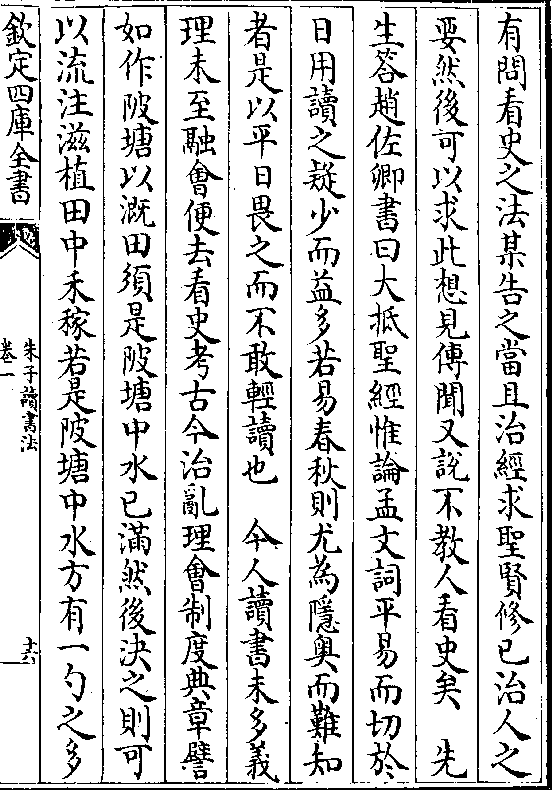 有問看史之法某告之當且治經求聖賢修已治人之
要然後可以求此想見傳聞又説不教人看史矣　先
生答趙佐卿書曰大抵聖經惟論孟文詞平易而切於
日用讀之疑少而益多若易春秋則尤為隱奥而難知
者是以平日畏之而不敢輕讀也　今人讀書未多義
理未至融會便去看史考古今治亂理會制度典章譬
如作陂塘以溉田須是陂塘中水已滿然後決之則可
以流注滋植田中禾稼若是陂塘中水方有一勺之多
欽定四庫全書
朱子讀書法
卷一
十六